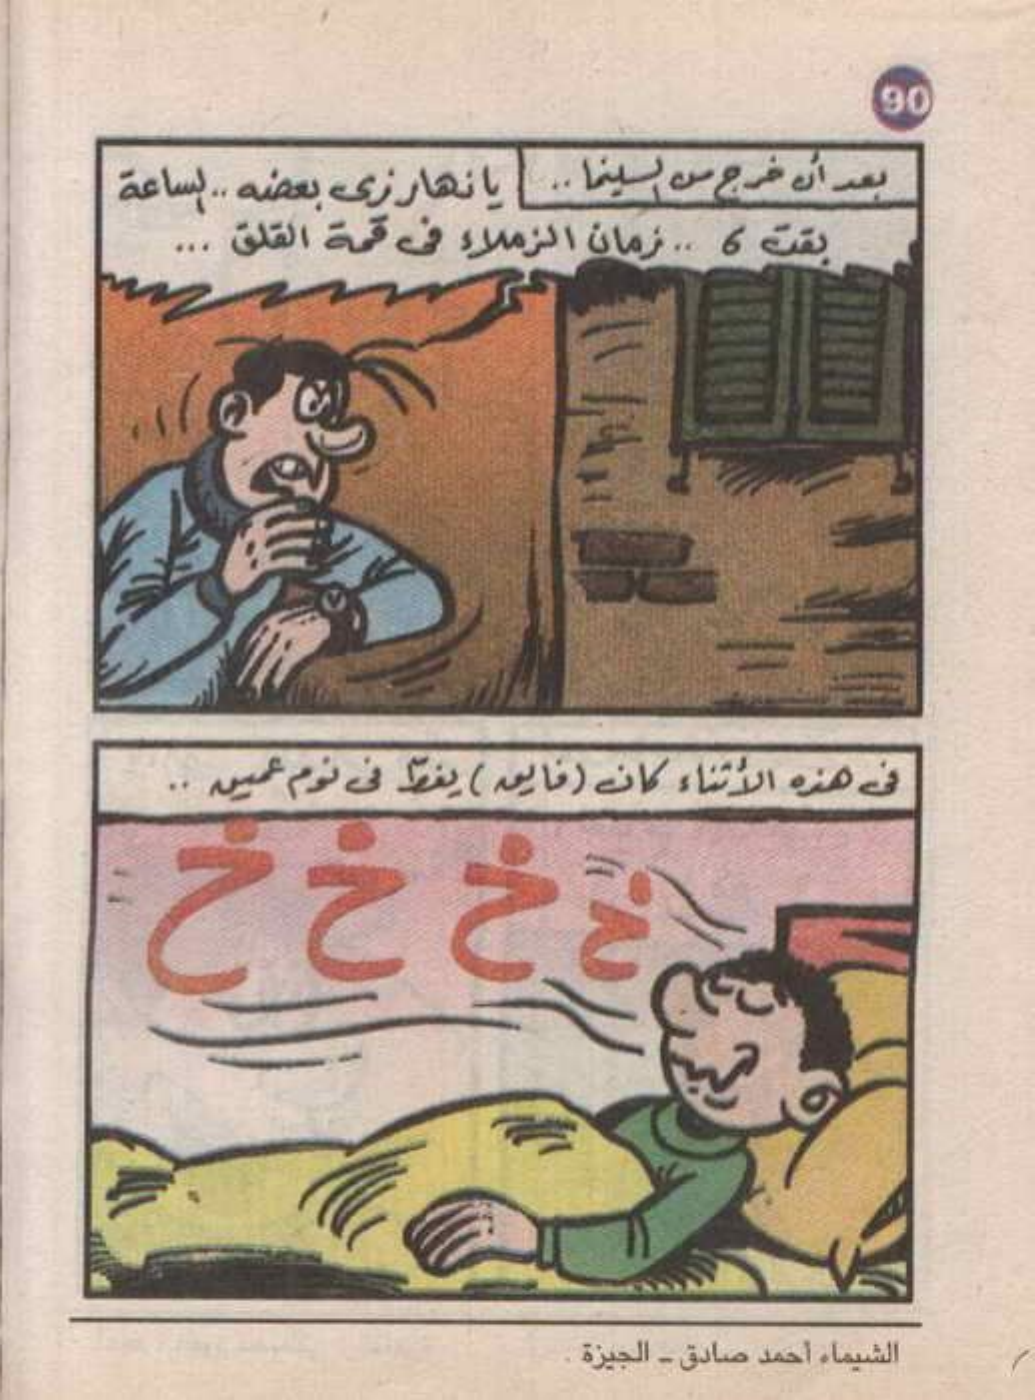 90
بعد أن خرج من السينما ..
يا نهار زى بعضه .. الساعة
بقت 6 .. زمان الزملاء فى قمة القلق ...
فى هذه الأثناء كان (فايق) يغطّ فى نوم عميق ..
خ خ خ خ
الشيماء أحمد صادق - الجيزة .